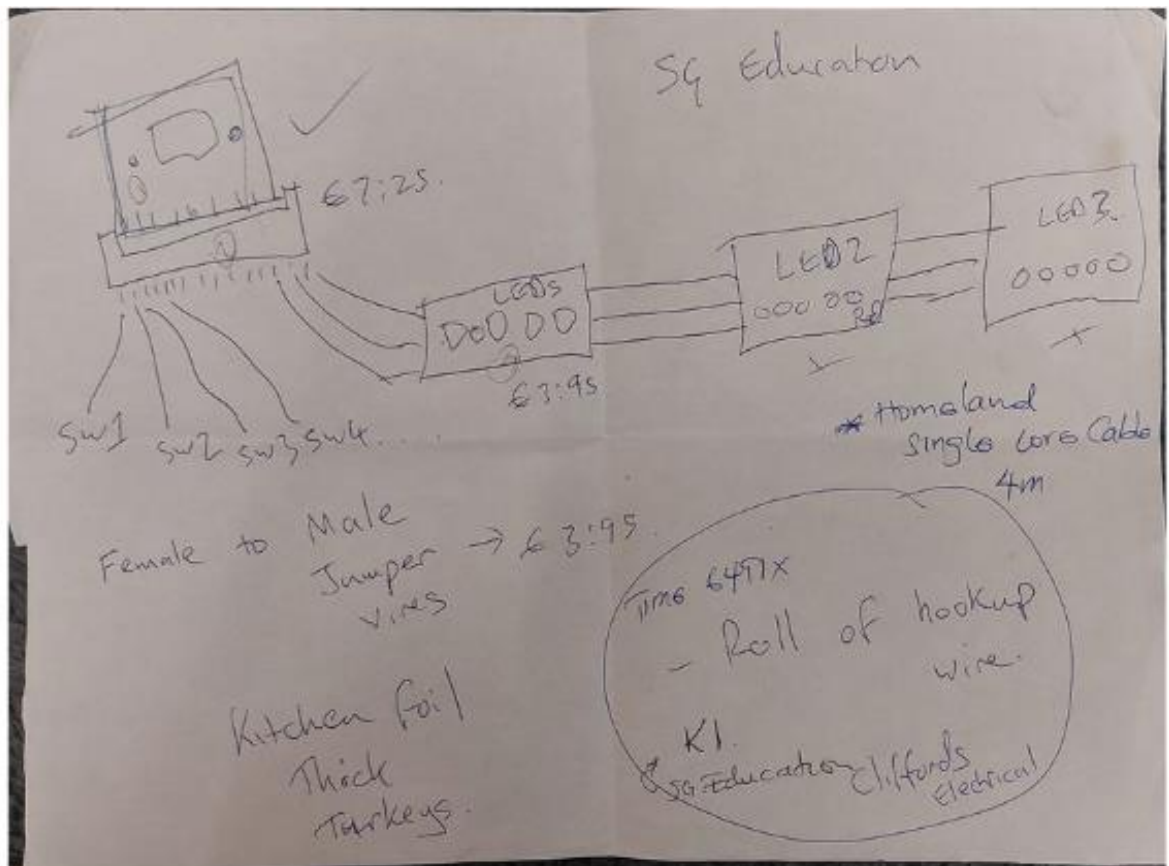 SG Education
€7:25.
LEDs
€3:95
LED2
LED3
SW1 SW2 SW3 SW4....
* Homeland
Single Core Cable
4m
Female to Male
Jumper → €3:95.
Wires
- Roll of hookup
wire.
K1.
SG Education Cliffords
Electrical
Kitchen Foil
Thick
Turkeys.